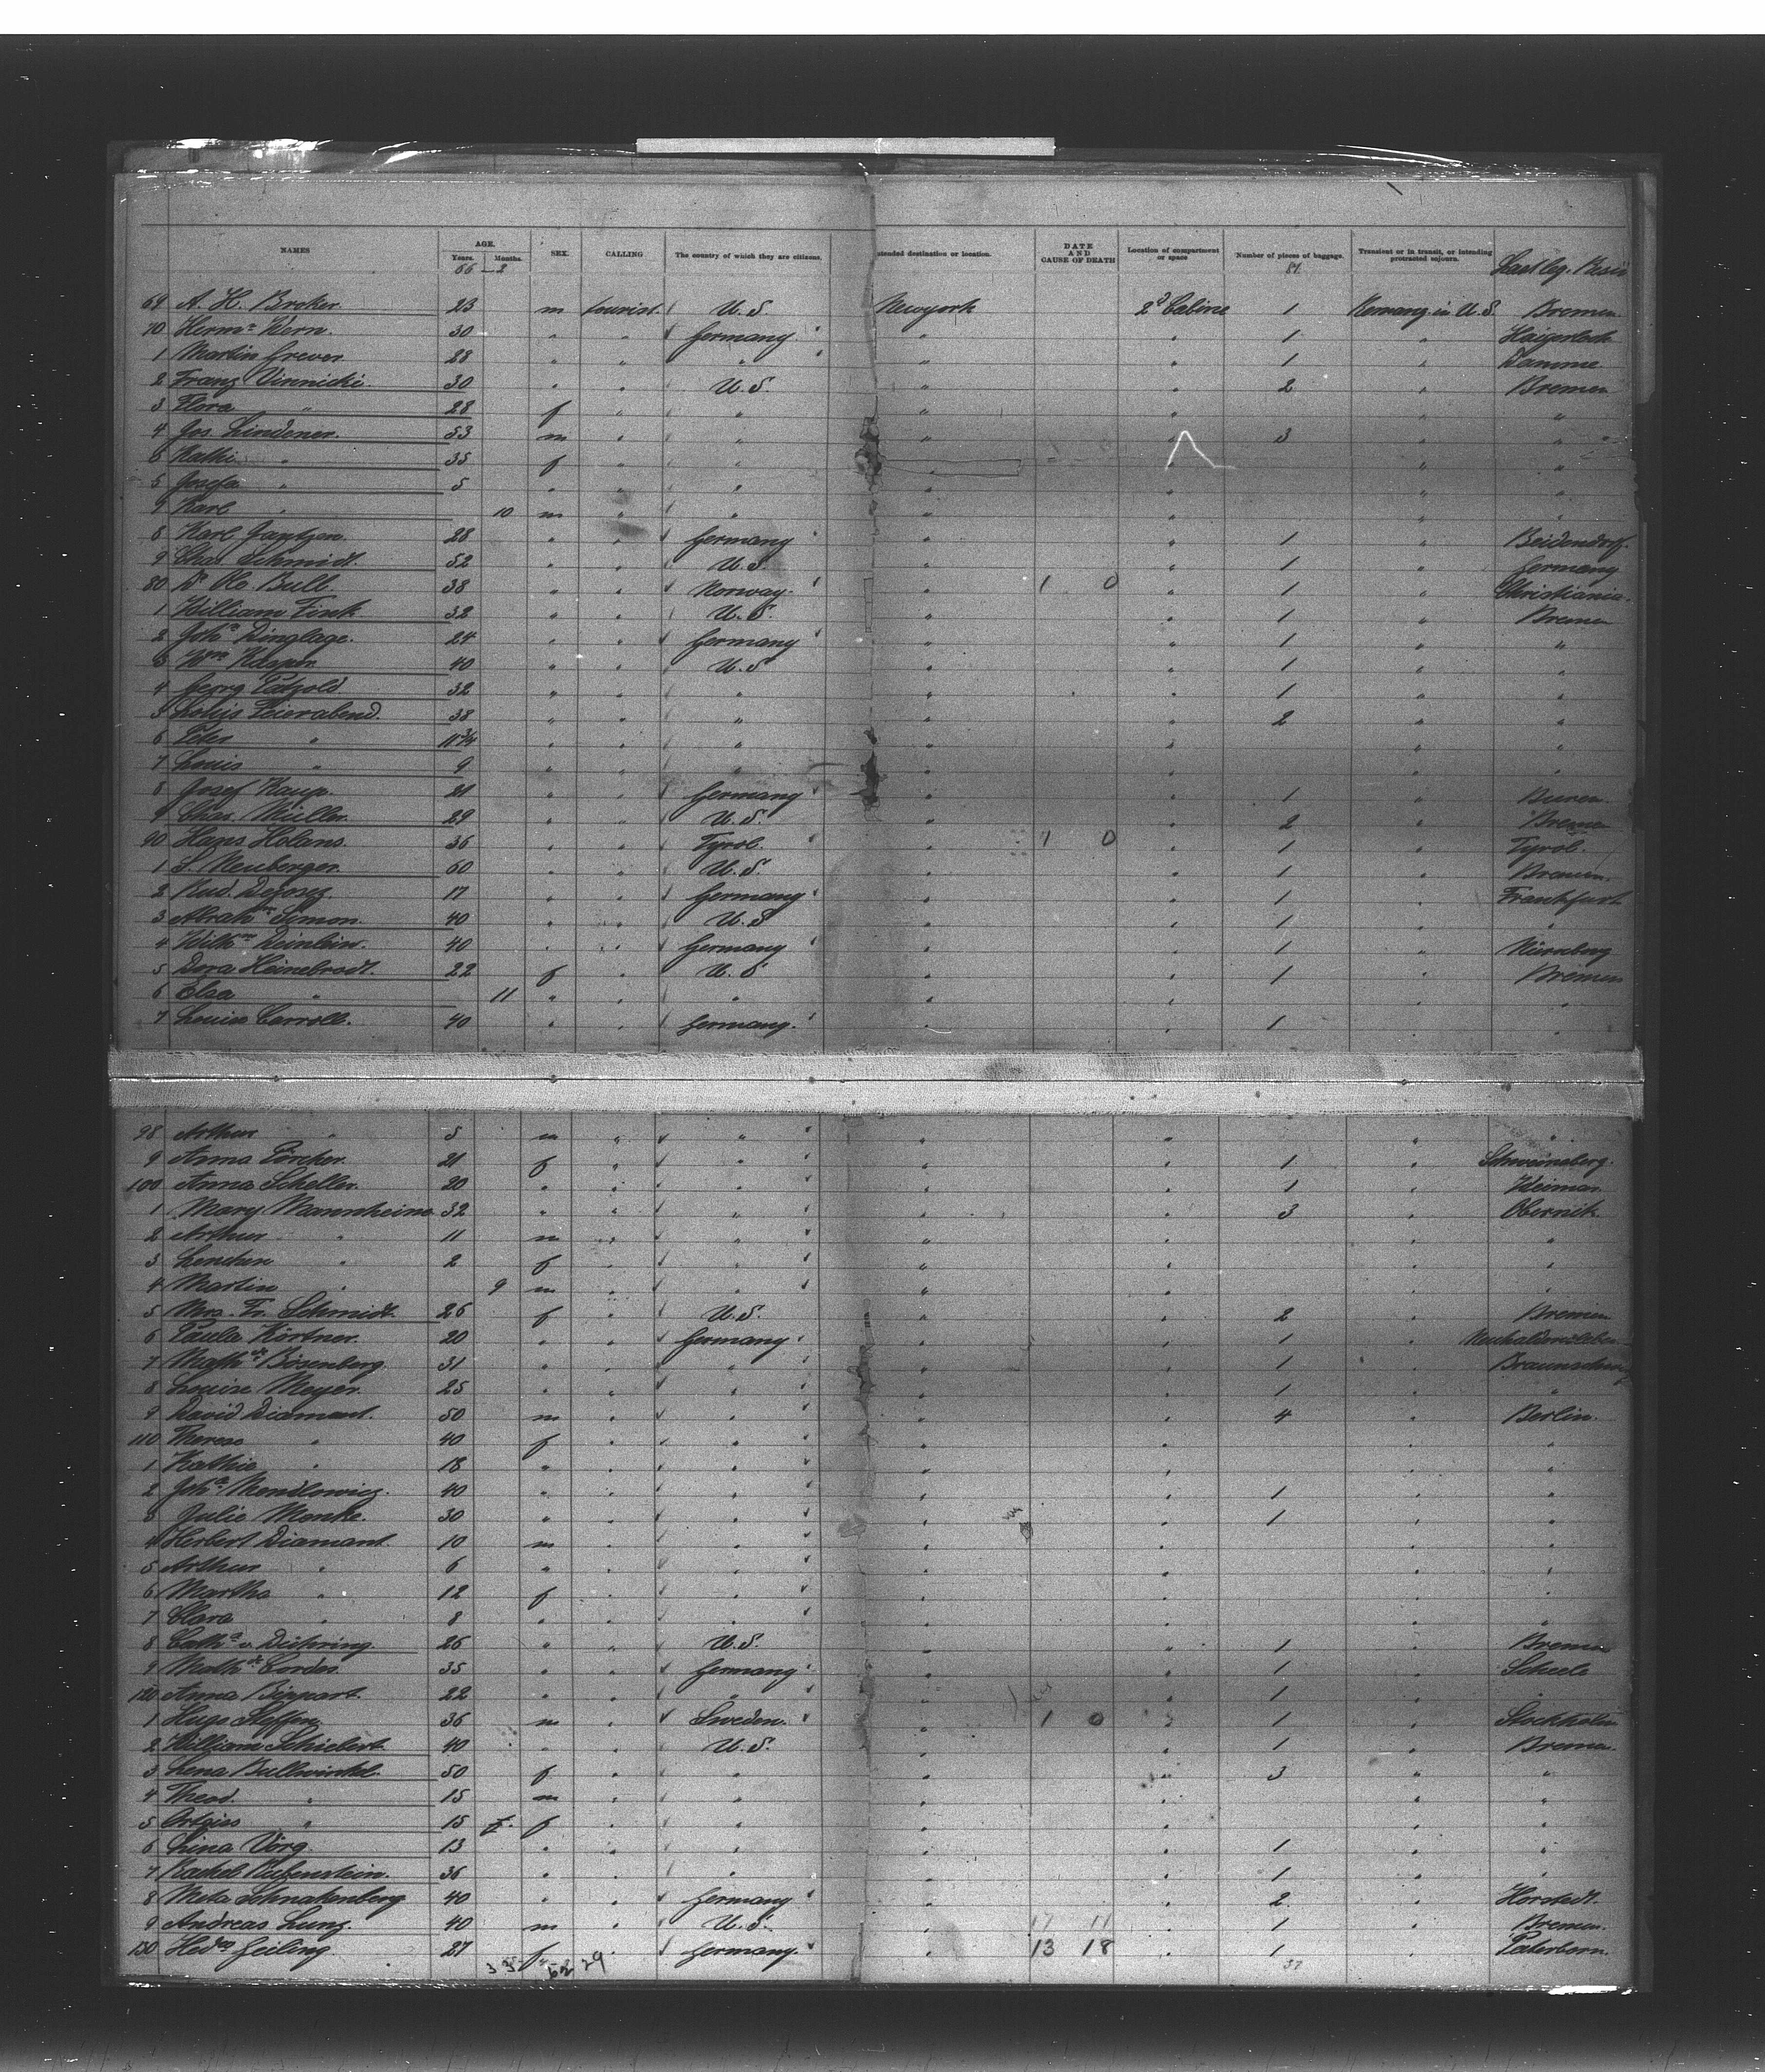 NAMES AGE. Years. Months. SEX. CALLING The country of which they are citizens. Intended destination or location. DATE AND CAUSE OF DEATH Location of compartment or space Number of pieces of baggage. Transient or in transit, or intending protracted sojourn. Last leg. Resid
66 - 2 81
69 A. H. Broker. 23 m tourist. U.S. Newyork 2d Cabine 1 Remang. in U.S. Bremen
70 Herm. Kern. 30 " " Germany. " " 1 " Haigerloch
1 Martin Grever. 28 " " " " " 1 " Damme
2 Franz Vinnicki. 30 " " U.S. " " 2 " Bremen
3 Flora " 28 f " " " " " "
4 Jos. Lindener. 53 m " " " " 3 " "
5 Kathi " 35 f " " " " " "
5 Josefa " 5 " " " " " " "
7 Karl " 10 m " " " " " "
8 Karl Jantzen. 28 " " Germany " " 1 " Beidendorf.
9 Chas. Schmidt. 52 " " U.S. " " 1 " Germany
80 Dr. Ole Bull 38 " " Norway. " 1 0 " 1 " Christiania.
1 William Fink 32 " " U.S. " " 1 " Bremen
2 Joh. Dinglage. 24 " " Germany " " 1 " "
3 Wm Kasper. 40 " " U.S " " 1 " "
4 Georg Patzold 32 " " " " " 1 " "
5 Feierabend. 38 " " " " " 2 " "
6 Peter " 11 3/4 " " " " " " "
7 Louis " 9 " " " " " " "
8 Josef Kaup. 21 " " Germany " " 1 " Bueren.
9 Chas. Müller. 29 " " U.S. " " 2 " Bremen
90 Hans Holans. 36 " " Tyrol. " 1 0 " 1 " Tyrol.
1 S. Neuberger. 60 " " U.S. " " 1 " Bremen.
2 Rud. 17 " " Germany " " 1 " Frankfurt
3 Abrahm Simon. 40 " " U.S " " 1 " "
4 Wilhm Deinlein. 40 " " Germany " " 1 " Nürnberg
5 Dora Heinebrodt. 22 f " U.S " " 1 " Bremen
6 Elsa " 11 " " " " " " "
7 Louise Carroll. 40 " " Germany. " " 1 " "
98 Arthur " 5 m " " " " " "
9 Anna Körcher. 21 f " " " " 1 " Schweinsberg.
100 Anna Scheller. 20 " " " " " 1 " Weimar
1 Mary Mannheim 32 " " " " " 3 " Obernik.
2 Arthur " 11 m " " " " " "
3 Lenchen " 2 f " " " " " "
4 Martin " 9 m " " " " " "
5 Mrs. Fr. Schmidt. 26 f " U.S. " " 2 " Bremen
6 Paula Körtner. 20 " " Germany. " " 1 " Neuhaldensleben
7 Mathde Bosenberg 31 " " " " " 1 " Braunschweig
8 Louise Meyer. 25 " " " " " 1 " "
9 David Diamant. 50 m " " " " 4 " Berlin.
110 Therese " 40 f " " " " " "
1 Kathie " 18 " " " " " " "
2 Joha Mendlowicz. 40 " " " " " 1 " "
3 Julie Menke. 30 " " " " " 1 " "
4 Herbert Diamant. 10 m " " " " " "
5 Arthur " 6 " " " " " " "
6 Martha " 12 f " " " " " "
7 Clara " 8 " " " " " " "
8 Catha v. Döhring. 26 " " U.S. " " 1 " Bremen
9 Mathde Cordes. 35 " " Germany " " 1 " Scheele
120 Anna Bippart. 22 " " " " " 1 " "
1 Hugo Steffen 36 m " Sweden. " 1 0 " 1 " Stockholm
2 William Schiebert 40 " " U.S. " " 1 " Bremen.
3 Lena Bullwinkel. 50 f " " " " 3 " "
4 Theod. " 15 m " " " " " "
5 " 15 f " " " " " "
6 Lina Vörg. 13 " " " " " 1 " "
7 Rachel Rubenstein. 36 " " " " " 1 " "
8 Meta Schnakenberg 40 " " Germany " " 2 " Horstedt.
9 Andreas Lunz. 40 m " U.S. " 17 11 " 1 " Bremen.
130 Hedw Geiling 27 f " Germany. " 13 18 " 1 " Paterborn.
33 52 29 37